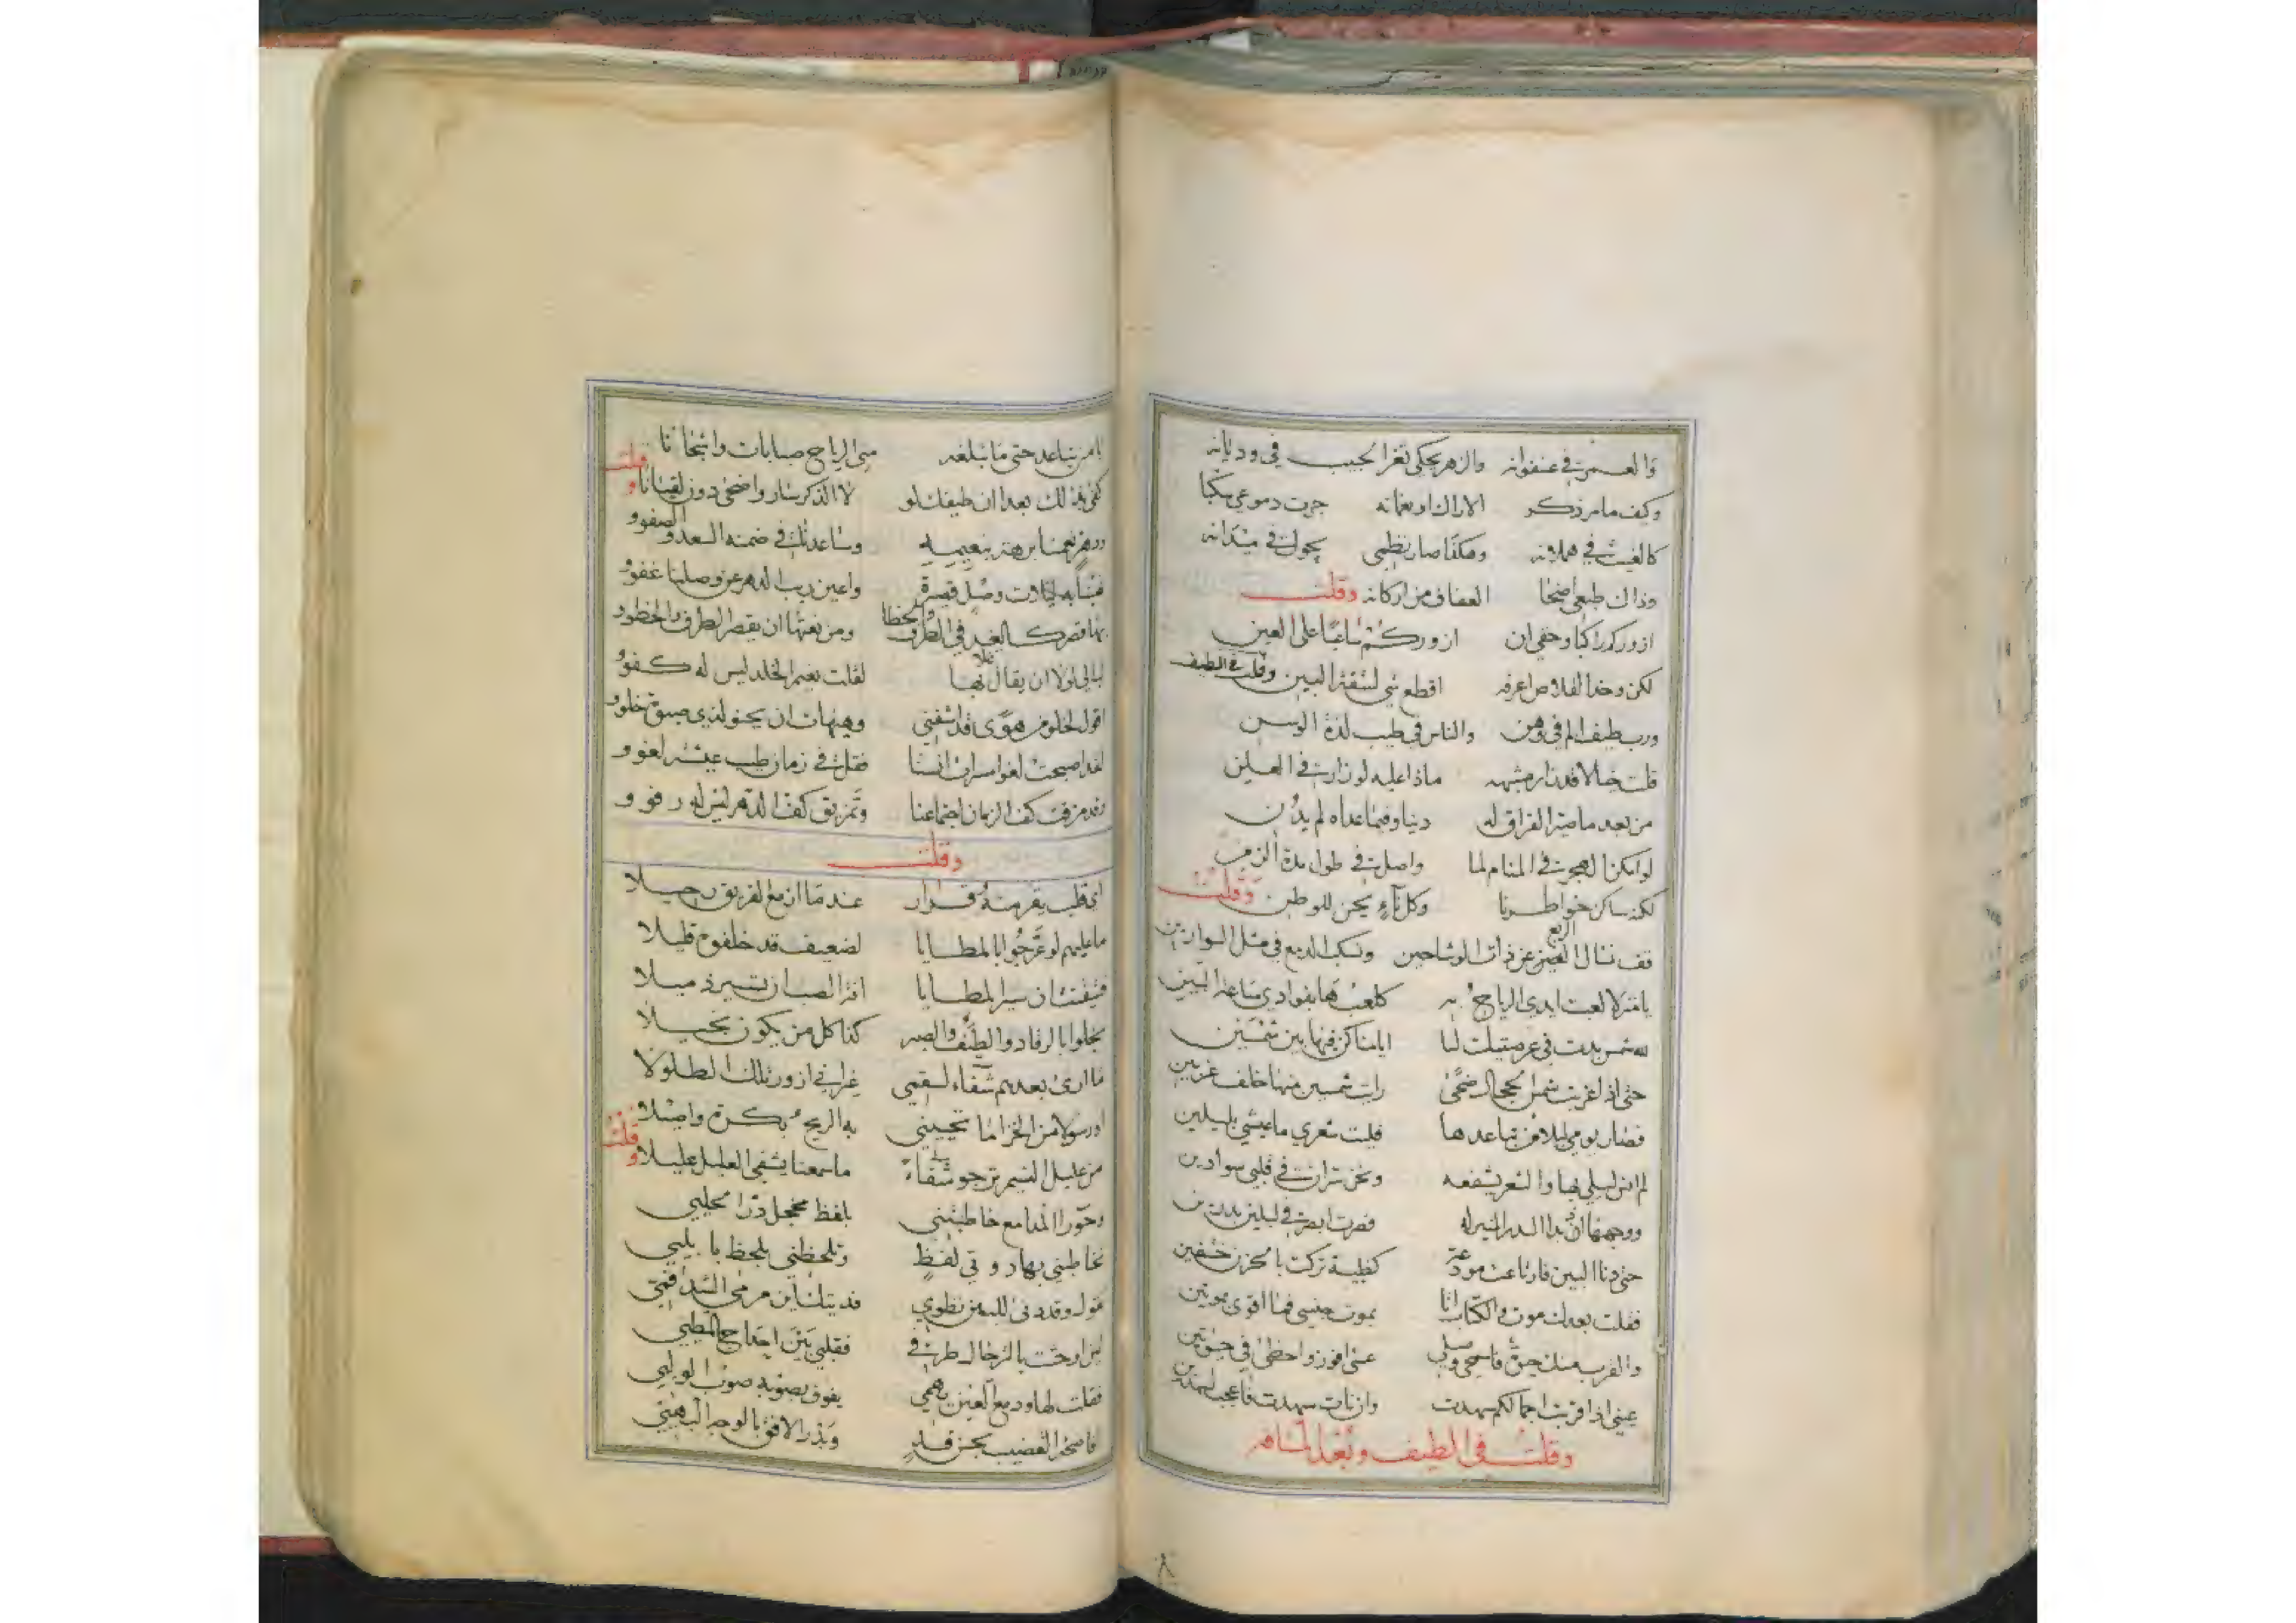 والعمر في عنفوانه والزهر يحكي ثغر الحبيب في وديانه
وكف ما مر ذكر الاراك او نعمانه جرت دموعي سكبا
كالغيث في هملانه وهكذا صار نظمي يجول في ميدانه
وذاك طبعي اضحا العفاف من اركانه وقلت
ازوركم راكبا وحقي ان ازوركم ساعيا على العين
لكن وخد القلاص اعرفه اقطع شي لشقة البين وقلت في الطيف
ورب طيف الم في وهن والناس في طيب لذة الوسن
قلت خيلا قد زار مشبهه ماذا عليه لو زارني في العلن
من بعد ما صير الفراق له دينا وفيما عداه لم يدن
لو امكنا الهجر في المنام لما واصلني في طول مدة الزمن
لكنه ساكن خواطرنا وكل ناء يحن للوطن وقلت
قف نسال الربع عن ذات الوشاحين ونسكب الدمع في مثل الوارين
يا منزلا لعبت ايدي الرياح به كلعبها بفوادي ساعة البين
لله شمس بدت في عرصتيك لنا ايامنا كن فيها بين شمسين
حتى اذا غربت شمس الضحى رايت شمسين منها خلف غربين
فصار يومي ليلا من تباعدها فليت شعري ما عيشي بليلين
لم انس ليلي بها والشعر يشفعه ونحن تراني في قلبي سوادين
ووجهها ان بدا البدر المنير له فصرت ابصر في ليلين بدرين
حتى دنا البين فارتاعت مودعة كظبية تركت بالحزن خشفين
فقلت بعدك موت والكتاب انا بموت جنسي فما اقوى بموتين
والقرب منك حيوة فاسمحي وصلي عسى افوز واحظى في حيوتين
عيني اذا قربت اجمالكم سهدت وان نات سهدت فاعجب لسهدين
وقلت في الطيف وبعد المنام
يا من تباعد حتى ما تبلغه مني الرياح صبابات واشجانا
كفى بذلك بعدا ان طيفك لو لا الذكر سار واضحى دون لقيانا وقلت
ودهر نعمنا برهة بنعيمه وساعدنا في ضمنه السعد والصفو
فبتنا به ليلات وصل قصيرة واعين ريب الدهر عن وصلنا غفو
بها قصر كالغيد في الطرف والخطا ومن نعتها ان يقصر الطرف والخطو
ليالي لولا ان يقال فلا بها لقلت نعيم الخلد ليس له كفو
اقول لخلو من هوى قد اشفني وهيهات ان يحنو لذي صبوة خلو
لقد اصبحت لغوا سرات انسنا فقلت في زمان طيب عيشه لغو
وقد مزقت كف الزمان اجتماعنا وتمزيق كف الدهر ليس له رفو
وقلت
اي قلب يقر منه قرار عندما ازمع الفريق رحيلا
ما عليهم لو عرجوا بالمطايا لضعيف قد خلفوه قليلا
فتيقنت ان سير المطايا افرا الصب ان تسير ذميلا
بخلوا بالرقاد والطيف والصبر كذا كل من يكون بخيلا
ما ارى بعدهم شفاء لسقمي غير اني ازور تلك الطلولا
او رسولا من الخزاما تحييني به الريح بكرة واصيلا
من عليل النسيم ترجو شفاء ما سمعنا يشفي العليل عليلا وقلت
وحورا المدامع خاطبتني بلفظ مخجل در الحلي
تخاطبني بهاروتي لفظ وتلحظني بلحظ بابلي
تقول وقد دنى للبين نطوي فديتك اين مرمى السيد فتي
لئن اوحشت بالترحال طرفي فقلبي بين احداج المطي
فقلت لها ودمع العين يهمي يفوق بصوبه صوب الولي
فاضحى القضيب بحسن قد وبدر الافق بالوجه البهي